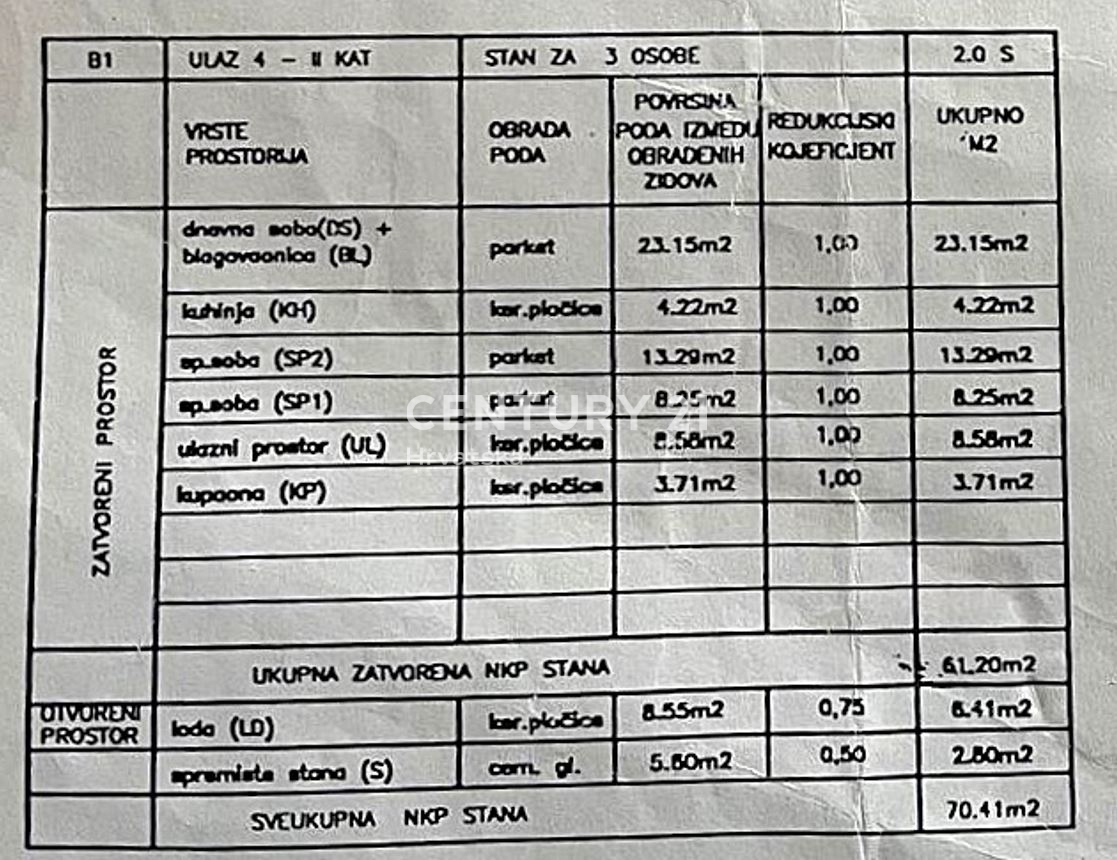 B1 ULAZ 4 - II KAT STAN ZA 3 OSOBE 2.0 S
VRSTE PROSTORIJA OBRADA PODA POVRSINA PODA IZMEDU OBRADENIH ZIDOVA REDUKCIJSKI KOJEFICJENT UKUPNO M2
ZATVORENI PROSTOR
dnevna soba(DS) + blagovaonica (BL) parket 23.15m2 1,00 23.15m2
kuhinja (KH) ker.pločice 4.22m2 1,00 4.22m2
sp.soba (SP2) parket 13.29m2 1,00 13.29m2
sp.soba (SP1) parket 8.25m2 1,00 8.25m2
ulazni prostor (UL) ker.pločice 8.58m2 1,00 8.58m2
kupaona (KP) ker.pločice 3.71m2 1,00 3.71m2
CENTURY 21
Hrvatska
UKUPNA ZATVORENA NKP STANA 61.20m2
OTVORENI PROSTOR
lođa (LD) ker.pločice 8.55m2 0,75 6.41m2
spremiste stana (S) cem. gl. 5.60m2 0,50 2.80m2
SVEUKUPNA NKP STANA 70.41m2